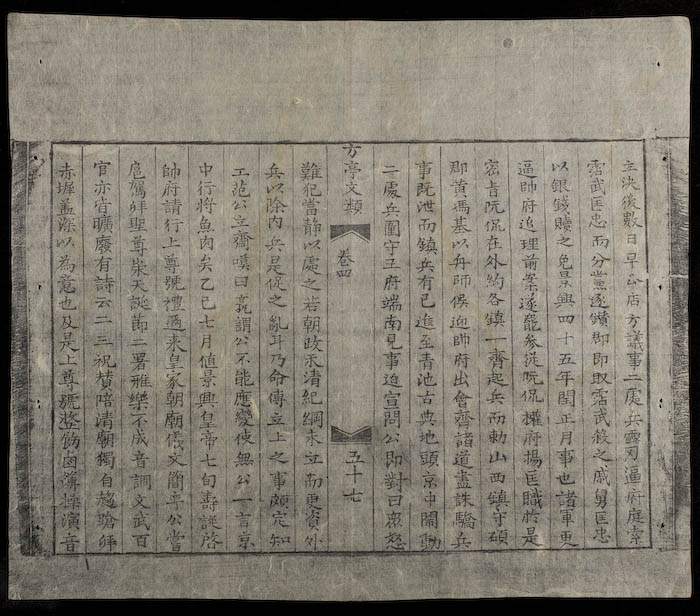 立決後數日早公店方議事二處兵露刃逼府庭索
霑武匡忠而分黨逐鑛即即取霑武殺之戚舅匡忠
以銀錢贖之免景興四十五年閏正月事也諸軍更
逼帥府追理前案遂罷參從阮侃權府揚匡賊於是
密旨阮侃在外約各鎮一齊起兵而勅山西鎮守碩
郡黄馮基以舟師俟迎帥府出會齊諸道盡誅驕兵
事既泄而鎮兵有已進至青池古典地頭京中鬧動
二處兵圍守王府端南見事迫宣問公即對曰衆怒
方亭文類
卷四
五十七
難犯當静以處之若朝政示清紀綱未立而更資外
兵以除内兵是促之亂耳乃命傳立上之事頗定知
工范公立齋嘆曰孰謂公不能應變使無公一言京
中行將魚肉矣乙巳七月値景興皇帝七旬壽誕啓
帥府請行上尊號禮邇来皇家朝廟儀文簡平公當
扈駕拜聖尊柴天誕節二署雅樂不成音調文武百
官亦皆曠廢有詩云二三祝贊陪清廟獨自趍蹌拜
赤墀盖深以為意也及是上尊號整飭鹵簿操演音